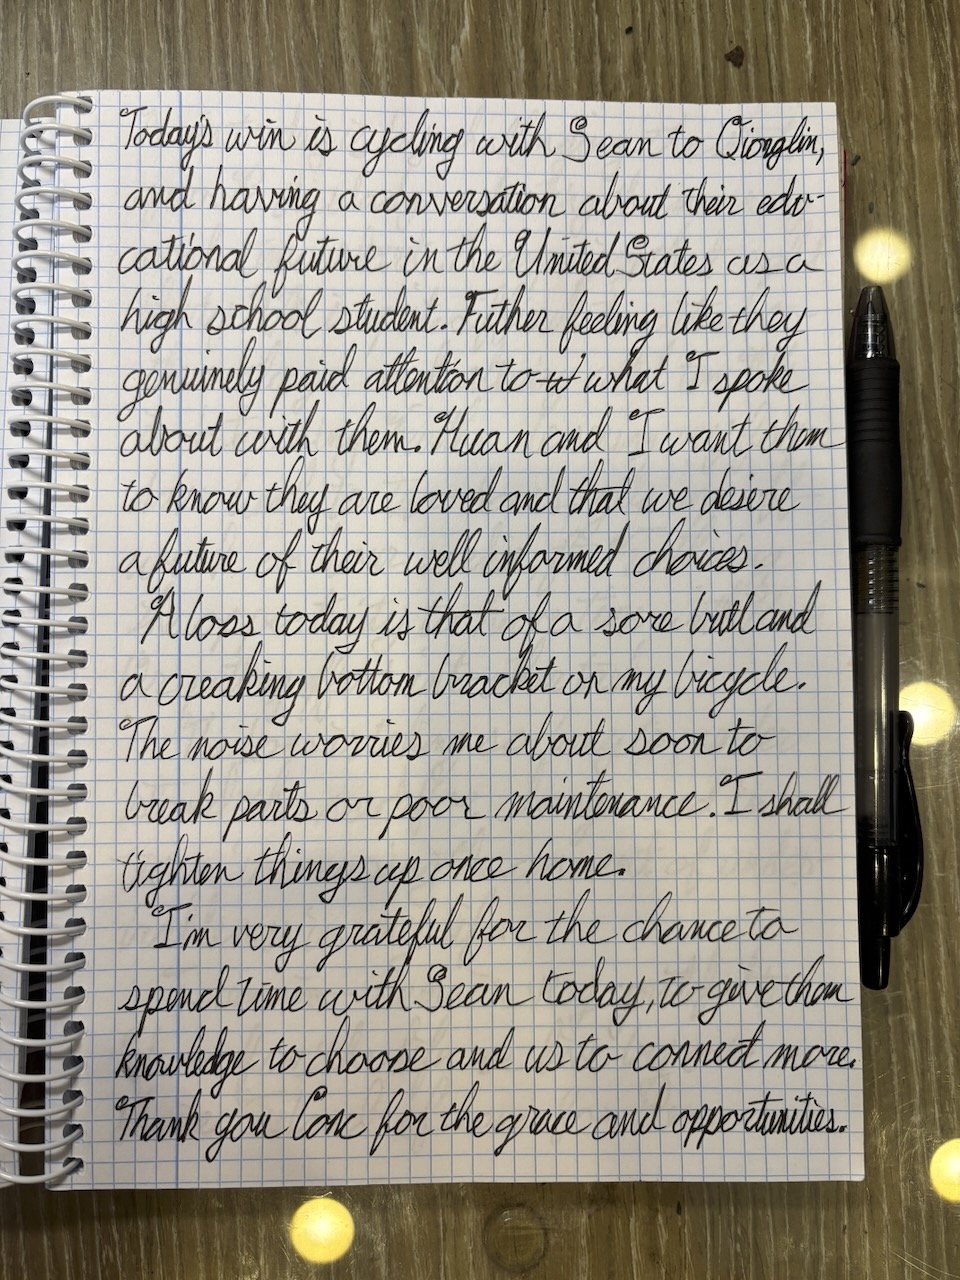 Today's win is cycling with Sean to Qionglin,
and having a conversation about their edu-
cational future in the United States as a
high school student. Futher feeling like they
genuinely paid attention to what I spoke
about with them. Huan and I want them
to know they are loved and that we desire
a future of their well informed choices.
A loss today is that of a sore butt and
a creaking bottom bracket on my bicycle.
The noise worries me about soon to
break parts or poor maintenance. I shall
tighten things up once home.
I'm very grateful for the chance to
spend time with Sean today, to give them
knowledge to choose and us to connect more.
Thank you for the grace and opportunities.